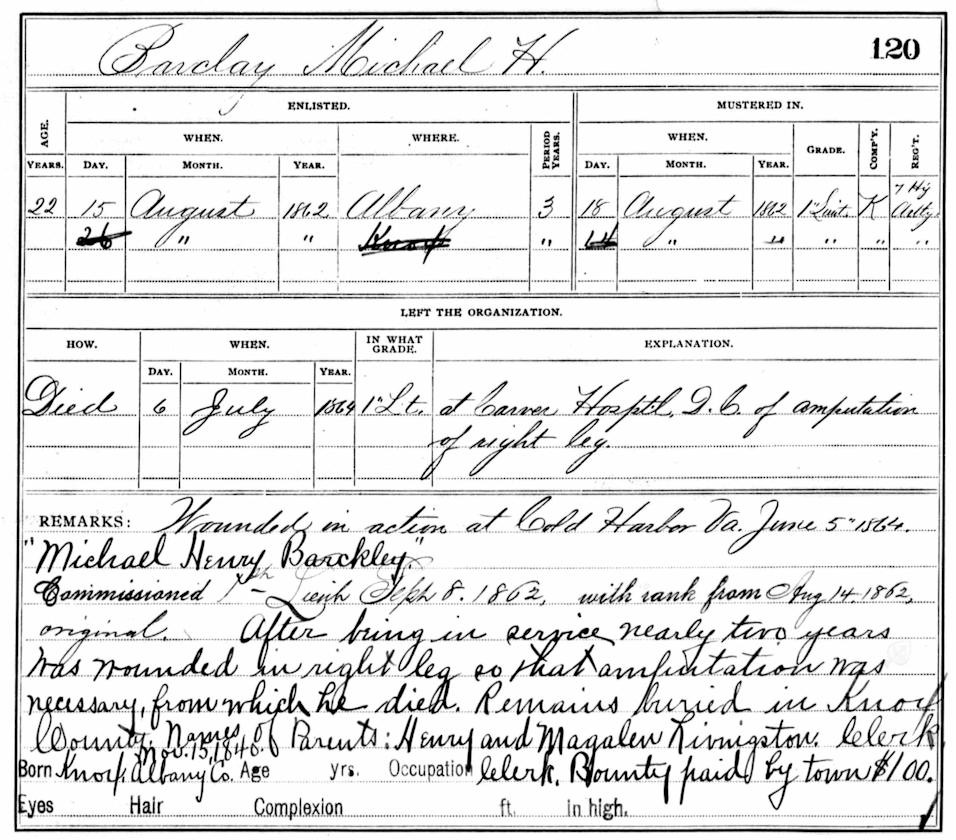 Barclay Michael H. 120
ENLISTED. MUSTERED IN.
AGE. WHEN. WHERE. PERIOD YEARS. WHEN. GRADE. COMP'Y. REG'T.
YEARS. DAY. MONTH. YEAR. DAY. MONTH. YEAR.
22 15 August 1862 Albany 3 18 August 1862 1" Lieut. K 7 Hy Arty.
26 " " Knox " 14 " " " " "
LEFT THE ORGANIZATION.
HOW. WHEN. IN WHAT GRADE. EXPLANATION.
DAY. MONTH. YEAR.
Died 6 July 1864 1" Lt. at Carver Hosptl, D.C. of amputation
of right leg.
REMARKS: Wounded in action at Cold Harbor Va. June 5" 1864.
"Michael Henry Barckley."
Commissioned Sept 8. 1862, with rank from Aug 14 1862,
original. After being in service nearly two years
was wounded in right leg so that amputation was
necessary, from which he died. Remains buried in Knox
County. Names of Parents: Henry and Magalen Livingston. Clerk
Nov. 15, 1840.
Born Knox, Albany Co. Age yrs. Occupation Clerk. Bounty paid by town $100.
Eyes Hair Complexion ft. in high.